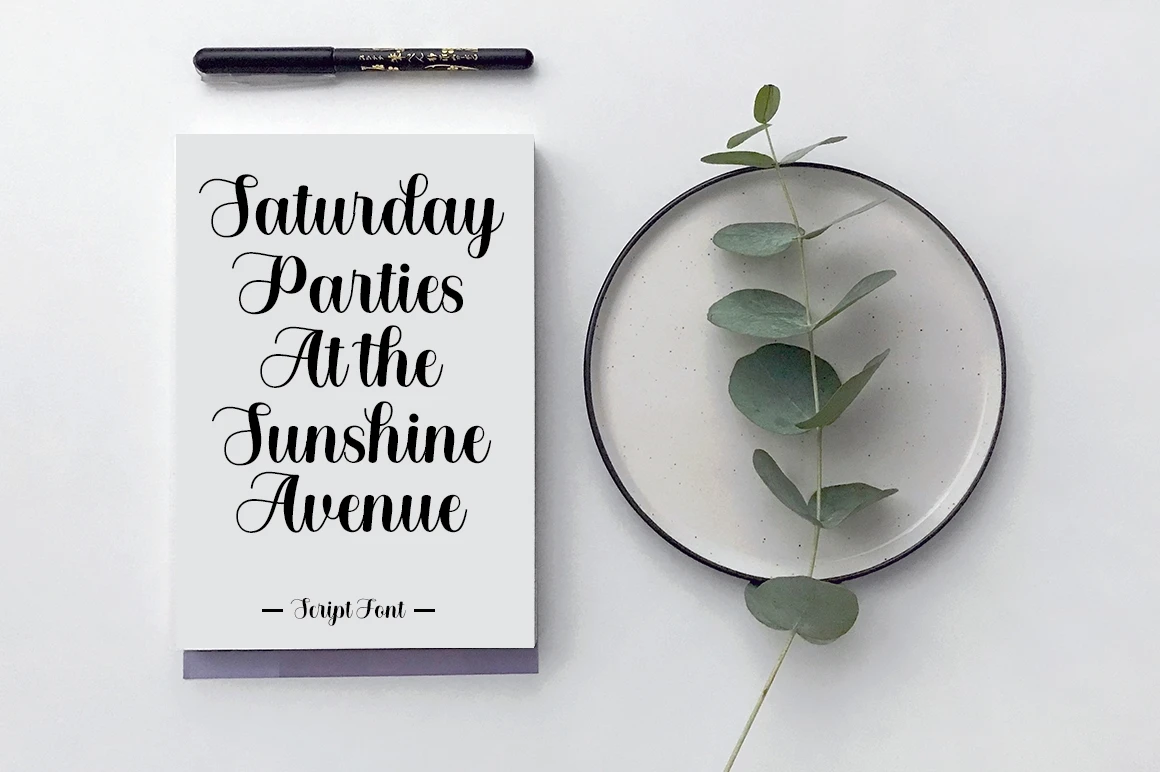 Saturday
Parties
At the
Sunshine
Avenue
— Script Font —